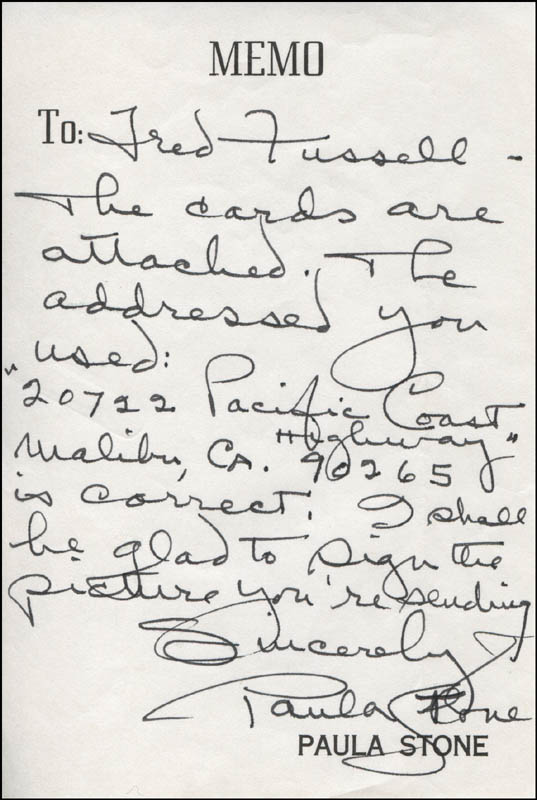 MEMO
To: Fred Fussell -
The cards are
attached. The
addressed you
used:
"20722 Pacific Coast
Highway"
Malibu, CA. 90265
is correct! I shall
be glad to sign the
picture you're sending
Sincerely
Paula Stone
PAULA STONE